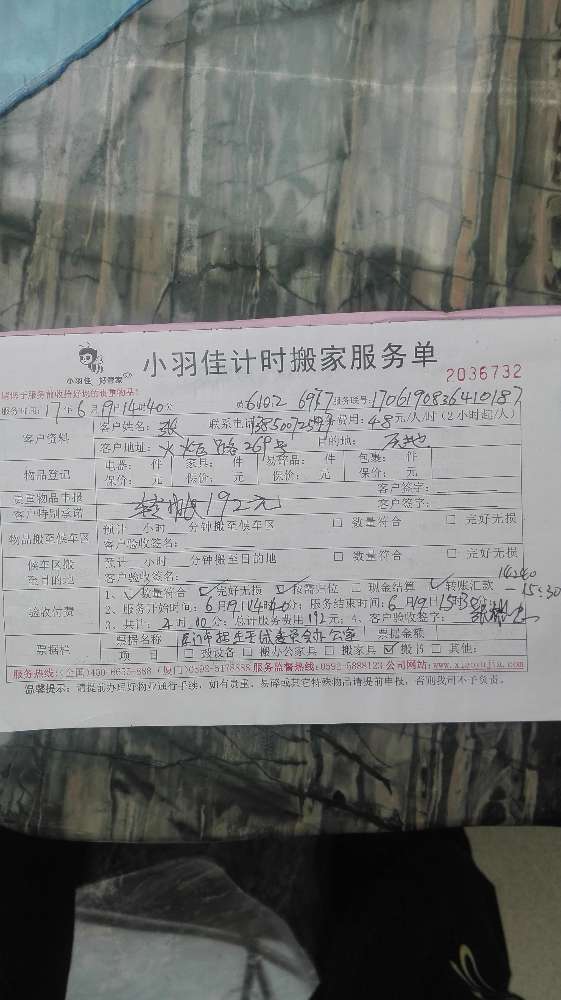 小羽佳 好管家
小羽佳计时搬家服务单
2036732
服务时间:17年6月19日14时40分 服务账号:170619083641O187
客户资料
客户姓名:张 联系电话 费用:48元/人/时(2小时起/人)
客户地址:火炬路269号 目的地:原地
物品登记
电器: 件 家具: 件 易碎品: 件 包裹: 件
保价: 元 保价: 元 保价: 元 保价: 元
贵重物品申报 客户签字:
客户特别承诺 192元 客户签字:
物品搬至候车区
预计 小时 分钟搬至候车区 □ 数量符合 □ 完好无损
客户验收签名:
候车区搬至目的地
预计 小时 分钟搬至目的地 □ 数量符合 □ 完好无损
客户验收签名:
14:40
-15:30
验收付费
1、☑数量符合 ☑完好无损 ☑按需归位 □ 现金结算 ☑转账汇款
2、服务开始时间:6月19日14时40分;服务结束时间:6月19日15时30分;
3、共计: 时 分;总计服务费用192元;4、客户验收签名:
票据栏
票据名称 票据金额
项 目 □ 搬设备 □ 搬办公家具 □ 搬家具 ☑ 搬书 □ 其他:
服务热线:(全国)400-6655-888 (厦门)0592-5178888 服务监督热线:0592-5888123 公司网站:www.xiaoyujia.com
温馨提示:请提前办理好物业通行手续,如有贵重、易碎或其它特殊物品请提前申报,否则我司不予负责。